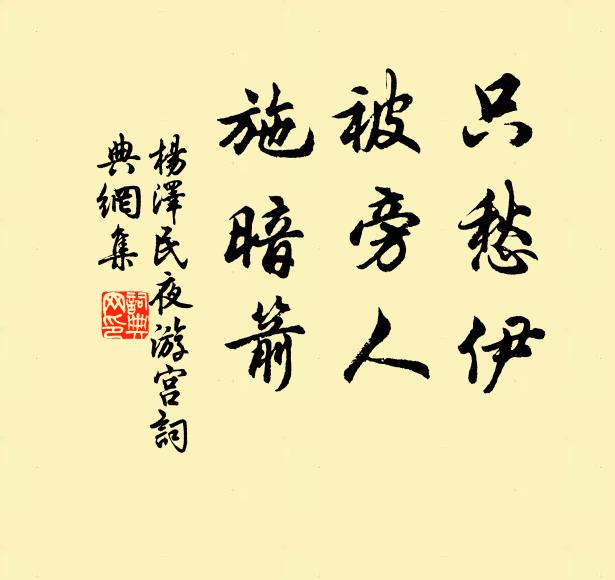 只愁伊
被旁人
施暗箭
楊澤民夜游宮詞
典網集
詞典
网印